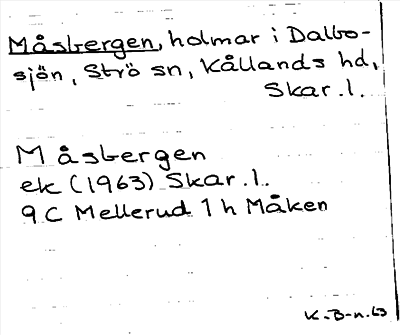 Måsbergen, holmar i Dalbo-
sjön, Strö sn, Kållands hd,
Skar. l.
Måsbergen
ek (1963) Skar. l.
9 C Mellerud 1 h Måken
K-B-n.63